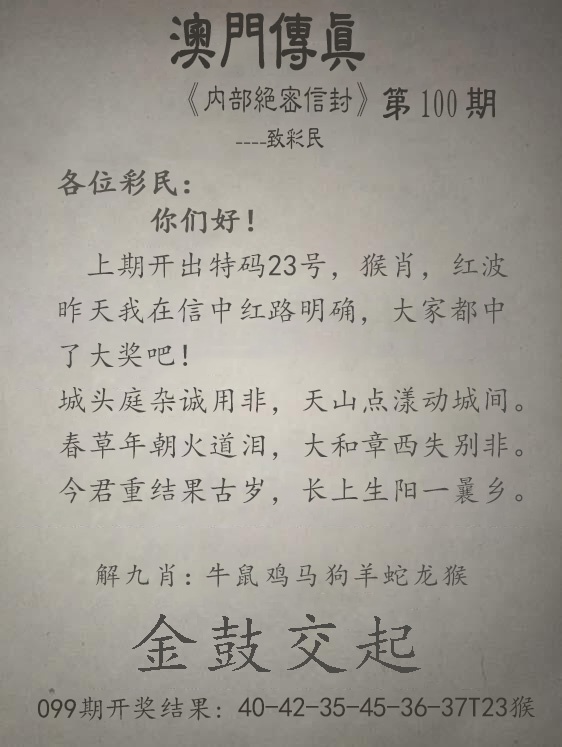 澳門傳眞
《内部絕密信封》第100期
----致彩民
各位彩民：
你们好！
上期开出特码23号，猴肖，红波
昨天我在信中红路明确，大家都中
了大奖吧！
城头庭杂诚用非，天山点漾动城间。
春草年朝火道泪，大和章西失别非。
今君重结果古岁，长上生阳一曩乡。
解九肖：牛鼠鸡马狗羊蛇龙猴
金鼓交起
099期开奖结果：40-42-35-45-36-37T23猴